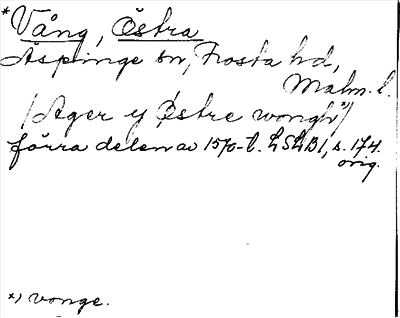 *Vång, Östra
Äspinge sn, Frosta hd,
Malm. l.
(Ager y Østre wongh*))
förra delen av 1570-t. LSLB 1, s. 174.
orig.
*) vonge.